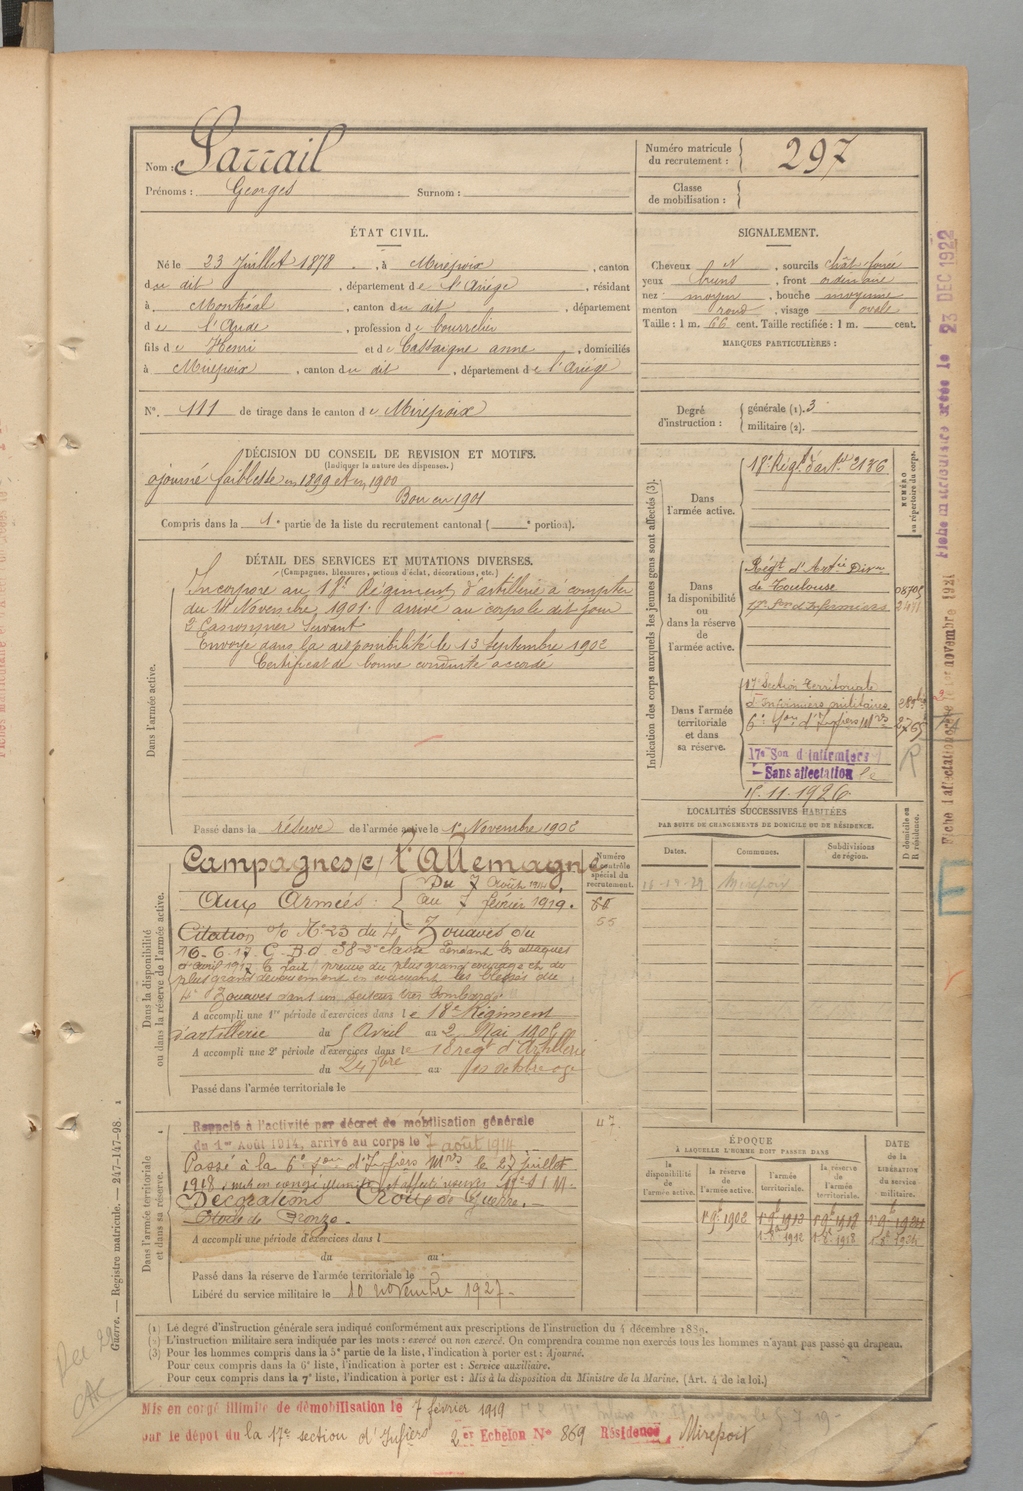 Nom : Sarrail
Prénoms : Georges Surnom :
Numéro matricule du recrutement : 297
Classe de mobilisation :
ÉTAT CIVIL.
Né le 23 Juillet 1878, à Mirepoix, canton
du dit, département de l'Ariège, résidant
à Montréal, canton du dit, département
de l'Aude, profession de bourrelier
fils de Henri et de Cassaigne anne, domiciliés
à Mirepoix, canton du dit, département de l'Ariège
N° 111 de tirage dans le canton de Mirepoix
SIGNALEMENT.
Cheveux N, sourcils chât foncé
yeux bruns, front ordinaire
nez : moyen, bouche moyenne
menton rond, visage ovale
Taille : 1 m. 66 cent. Taille rectifiée : 1 m. cent.
MARQUES PARTICULIÈRES :
Degré d'instruction : générale (1). 3
militaire (2).
DÉCISION DU CONSEIL DE REVISION ET MOTIFS.
(Indiquer la nature des dispenses.)
ajourné faiblesse en 1899 et en 1900
Bon en 1901
Compris dans la 1e partie de la liste du recrutement cantonal ( e portion).
DÉTAIL DES SERVICES ET MUTATIONS DIVERSES.
(Campagnes, blessures, actions d'éclat, décorations, etc.)
Dans l'armée active.
Incorporé au 18e Régiment d'artillerie à compter
du 14 Novembre 1901. arrivé au corps le dit jour
2e Canonnier Servant
Envoyé dans la disponibilité le 13 Septembre 1902
Certificat de bonne conduite accordé
Passé dans la réserve de l'armée active le 1er Novembre 1902
Indication des corps auxquels les jeunes gens sont affectés (3).
NUMÉRO au répertoire du corps.
Dans l'armée active.
18e Régt d'artie 2136
Dans la disponibilité ou dans la réserve de l'armée active.
Régt d'Artie Divre
de Toulouse
17e Son d'Infirmiers
Dans l'armée territoriale et dans sa réserve.
17e Section Territoriale
d'infirmiers militaires
6e Son d'Infiers Mres
17e Son d'infirmiers
Sans affectation le
15.11.1926
LOCALITÉS SUCCESSIVES HABITÉES
PAR SUITE DE CHANGEMENTS DE DOMICILE OU DE RÉSIDENCE.
Dates. Communes. Subdivisions de région. D domicile ou R résidence.
Mirepoix
Dans la disponibilité ou dans la réserve de l'armée active.
Numéro au contrôle spécial du recrutement.
55
Campagnes c/ l'Allemagne
Aux Armées : Du 7 Août 1914
au 7 février 1919.
Citation o/o N° 23 du 4e Zouaves du
16-6-17 C. Bd. 38e classe Pendant les attaques
d'avril 1917 a fait preuve du plus grand courage et du
plus grand dévouement en évacuant les blessés du
4e Zouaves dans un secteur très bombardé
A accompli une 1re période d'exercices dans le 18e Régiment
d'artillerie du 5 Avril au 2 Mai 1905
A accompli une 2e période d'exercices dans le 18 regt d'Artillerie
du 24 7bre au 10 octobre 08
Passé dans l'armée territoriale le
Dans l'armée territoriale et dans sa réserve.
Rappelé à l'activité par décret de mobilisation générale
du 1er Août 1914, arrivé au corps le 7 août 1914
Passé à la 6e Son d'Infiers Mres le 27 juillet
1918
Décorations Croix de Guerre.
Etoile de Bronze.
A accompli une période d'exercices dans l
du au
Passé dans la réserve de l'armée territoriale le
Libéré du service militaire le 10 novembre 1927.
47
ÉPOQUE
À LAQUELLE L'HOMME DOIT PASSER DANS
DATE de la LIBÉRATION du service militaire.
la disponibilité de l'armée active. la réserve de l'armée active. l'armée territoriale. la réserve de l'armée territoriale.
(1) Le degré d'instruction générale sera indiqué conformément aux prescriptions de l'instruction du 4 décembre 1889.
(2) L'instruction militaire sera indiquée par les mots : exercé ou non exercé. On comprendra comme non exercés tous les hommes n'ayant pas passé au drapeau.
(3) Pour les hommes compris dans la 5e partie de la liste, l'indication à porter est : Ajourné.
Pour ceux compris dans la 6e liste, l'indication à porter est : Service auxiliaire.
Pour ceux compris dans la 7e liste, l'indication à porter est : Mis à la disposition du Ministre de la Marine. (Art. 4 de la loi.)
Mis en congé illimité de démobilisation le 7 février 1919
par le dépôt du la 17e section d'Infiers 2er Echelon N° 869 Résidence Mirepoix
Guerre. — Registre matricule. — 247-147-98. 1
Fiche matriculaire créée le 23 DEC 1922